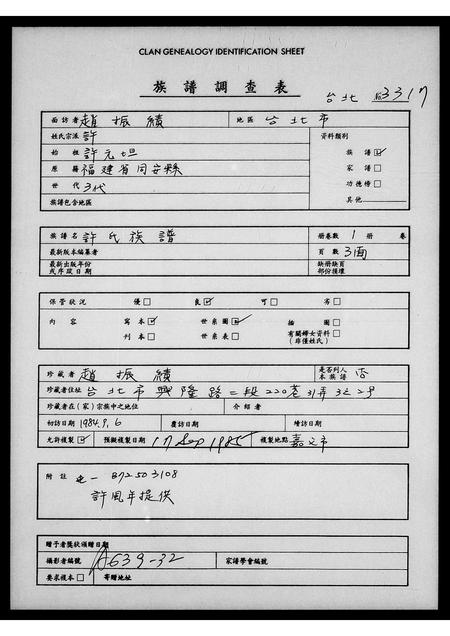 CLAN GENEALOGY IDENTIFICATION SHEET
族譜調查表
台北 3317
面訪者 趙振績 地區 台北市
姓氏宗派 許 資料類別
始祖 許元坦 族譜☑
原籍 福建省同安縣 家譜□
世代 3代 功德榜□
族譜包含地區 其他
族譜名 許氏族譜 冊卷數 1 冊 卷
最新版本編纂者 頁數 3面
最新出版年份 缺冊缺頁
或序跋日期 部份損壞
保管狀況 優□ 良☑ 可□ 劣□
內容 寫本☑ 世系圖☑ 插圖□
刊本□ 世系表□ 有關婦女資料□
(非僅姓氏)
珍藏者 趙振績 是否列入本族譜 否
珍藏者住址 台北市興隆路二段220巷31弄3之2号
珍藏者在(家)宗族中之地位 介紹者
初訪日期 1984.9.6 覆訪日期 續訪日期
允許複製☑ 預擬複製日期 17 Sep 1985 複製地點 嘉文市
附註 872503108
許風年提供
贈予者獎狀頒贈日期
攝影者編號 A639-32 家譜學會編號
要求複本□ 寄贈地址